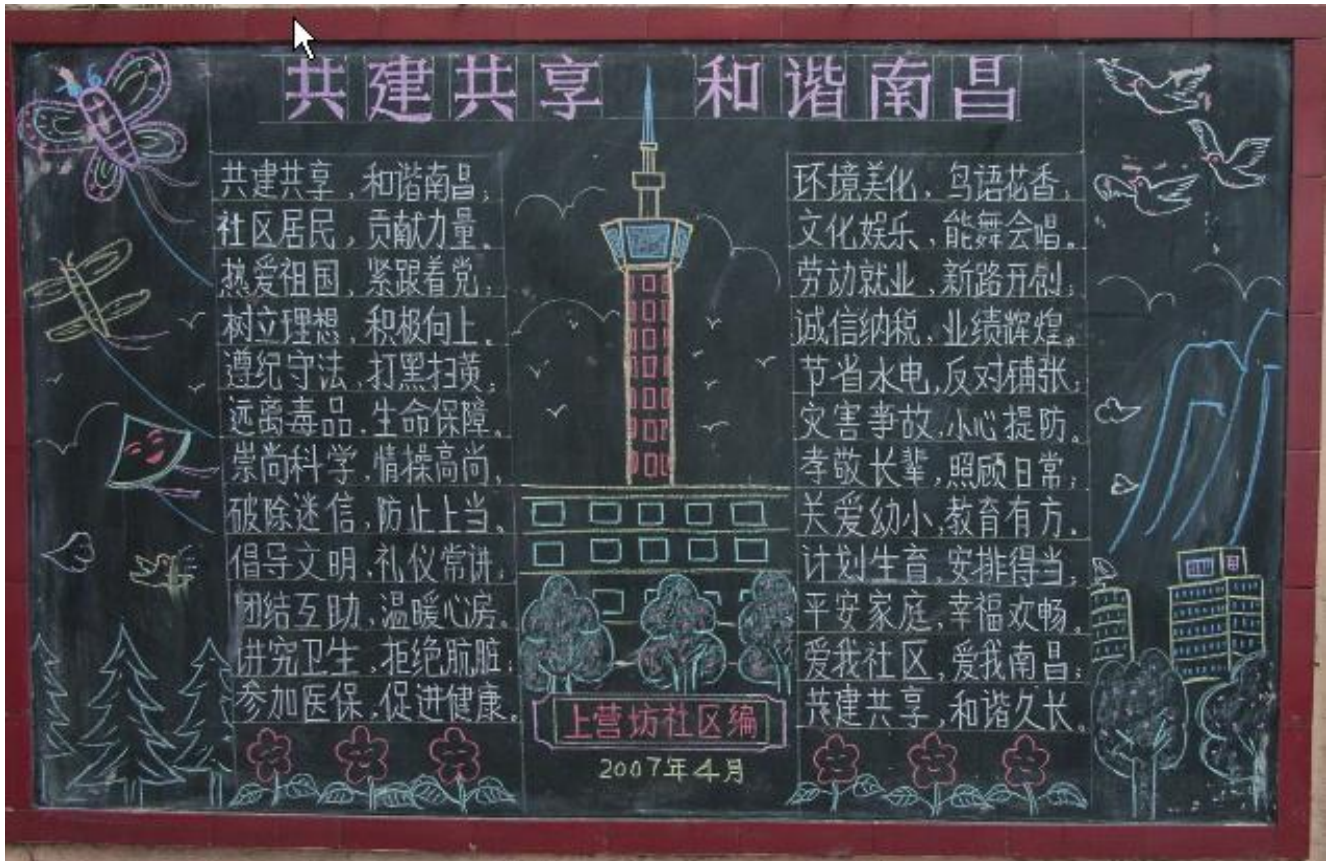 共建共享 和谐南昌
共建共享，和谐南昌；
社区居民，贡献力量。
热爱祖国，紧跟着党；
树立理想，积极向上。
遵纪守法，打黑扫黄；
远离毒品，生命保障。
崇尚科学，情操高尚，
破除迷信，防止上当。
倡导文明，礼仪常讲；
团结互助，温暖心房。
讲究卫生，拒绝肮脏；
参加医保，促进健康。
环境美化，鸟语花香；
文化娱乐，能舞会唱。
劳动就业，新路开创；
诚信纳税，业绩辉煌。
节省水电，反对铺张；
灾害事故，小心提防。
孝敬长辈，照顾日常；
关爱幼小，教育有方。
计划生育，安排得当；
平安家庭，幸福欢畅。
爱我社区，爱我南昌；
共建共享，和谐久长。
上营坊社区编
2007年4月